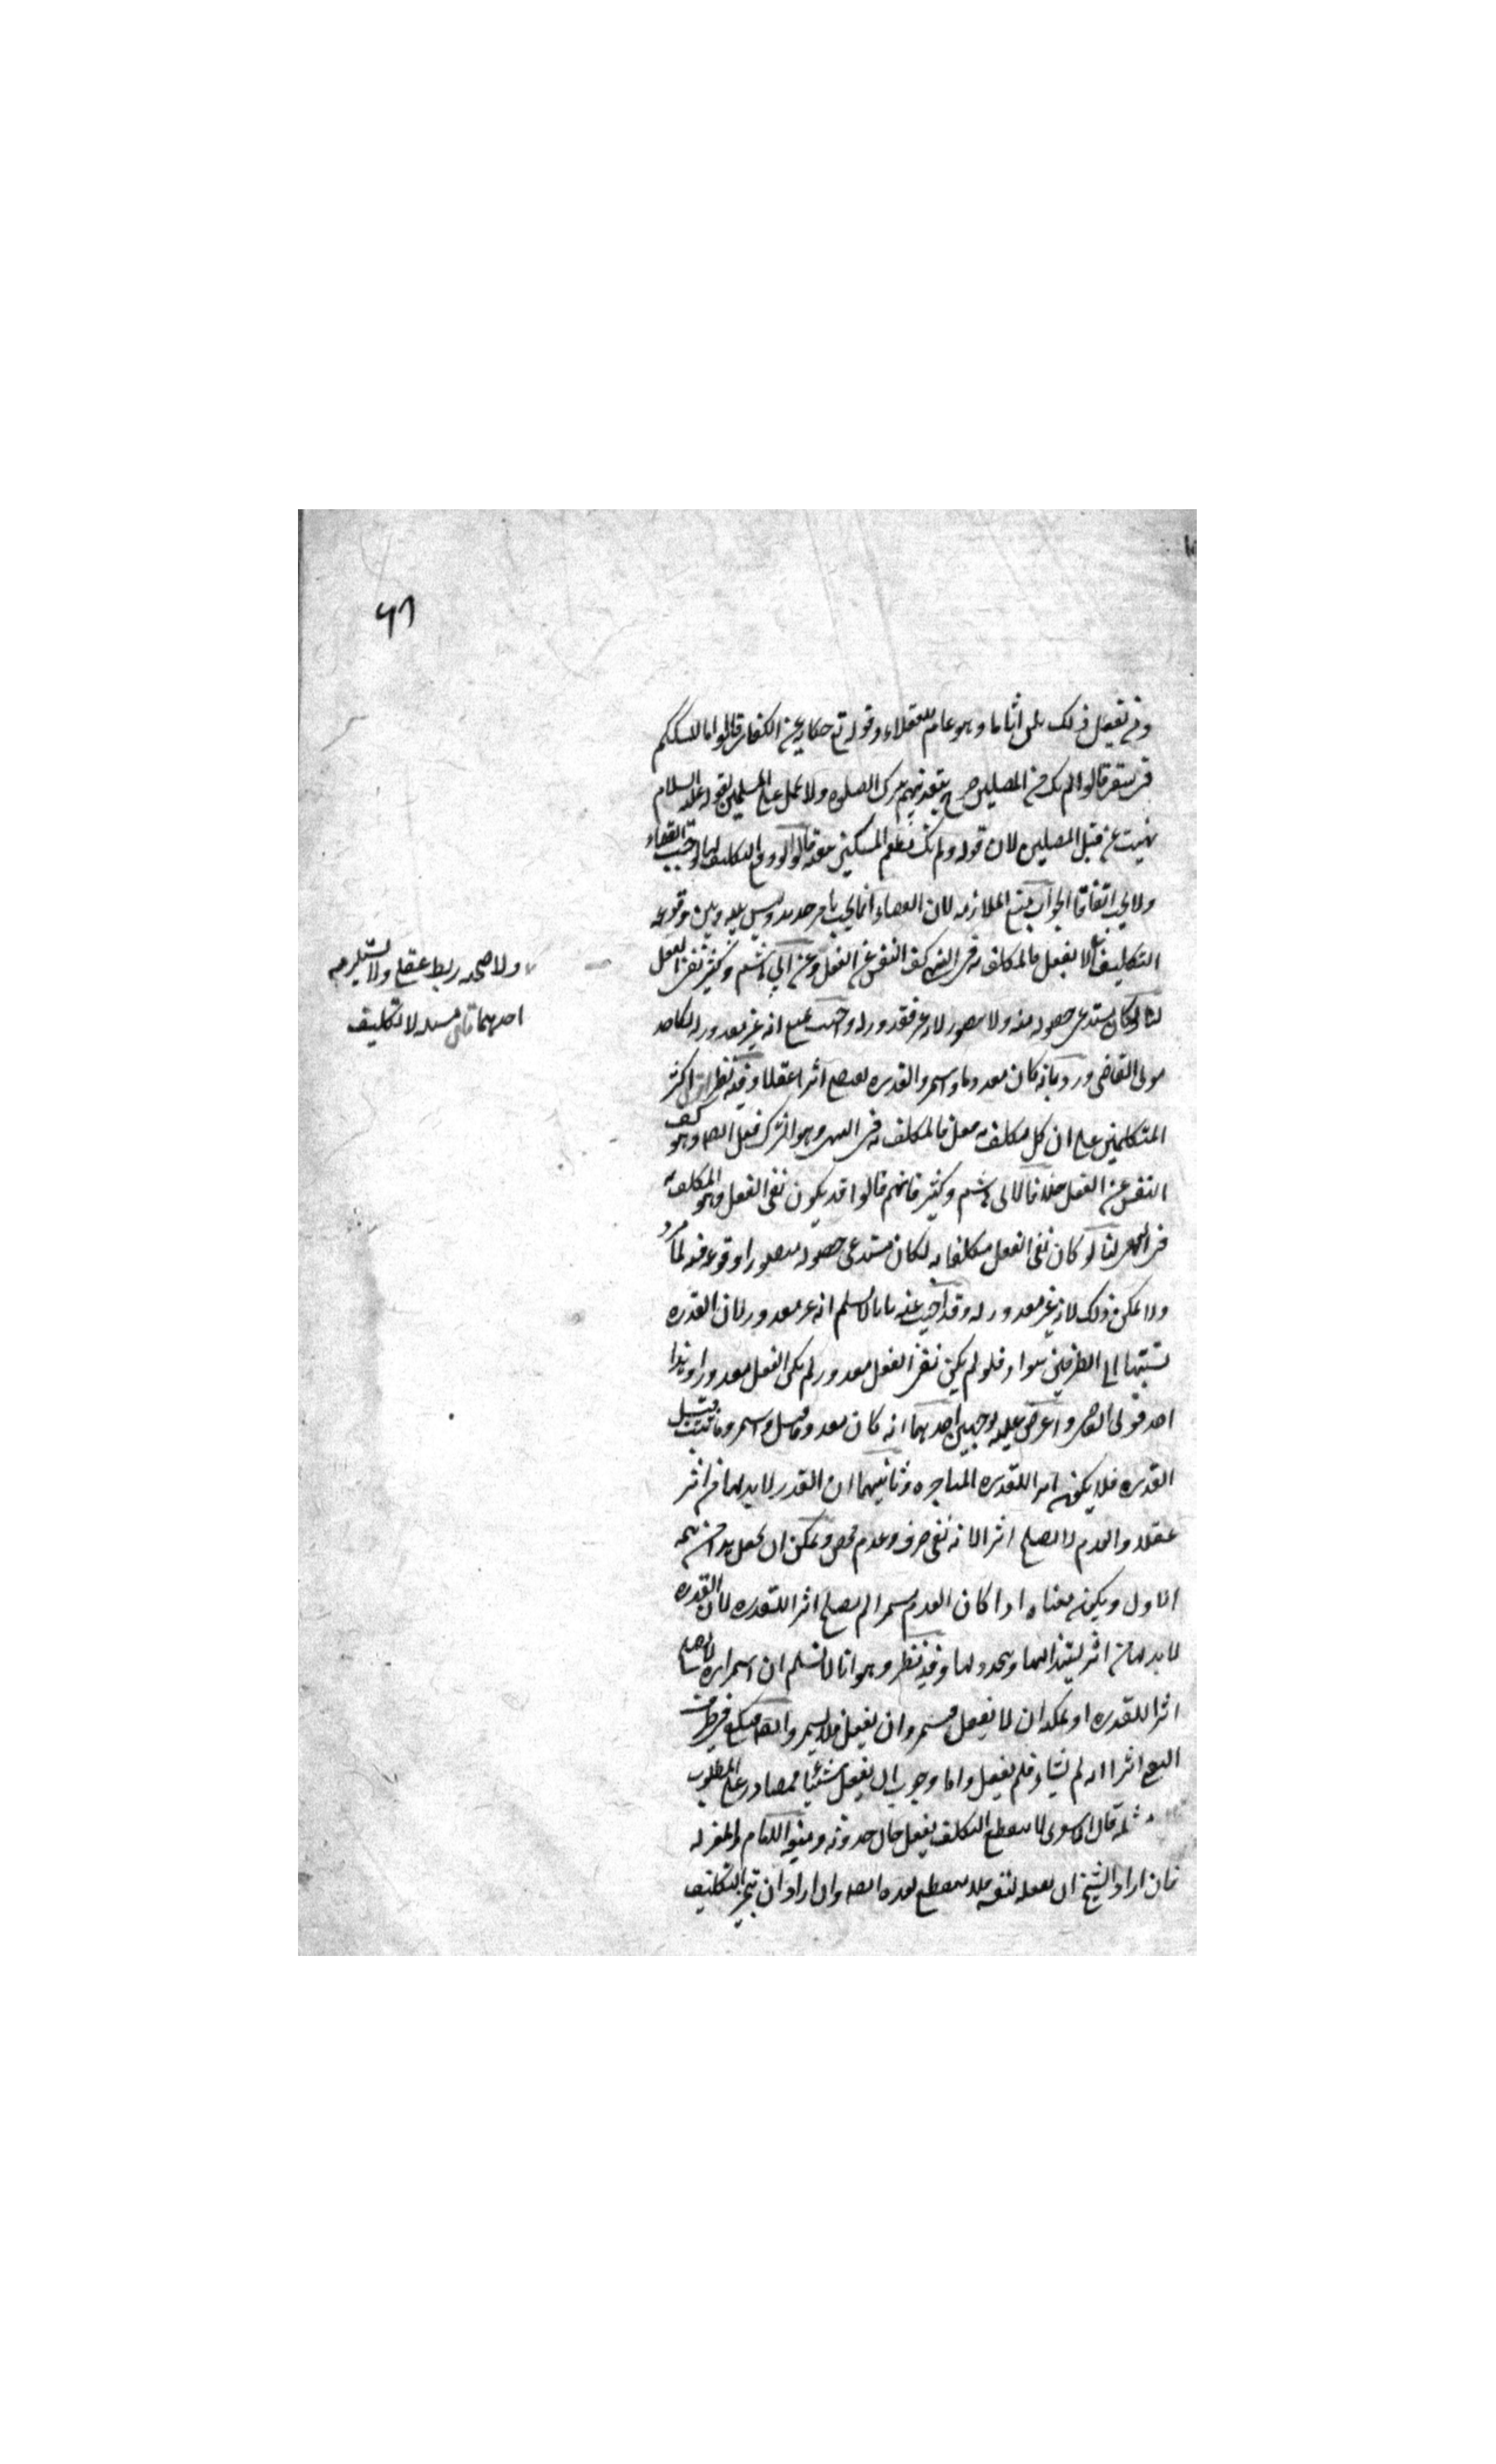 ٤٦
ومن يفعل ذلك يلق اثاما وهو عام للعقلاء وقوله تع حكاية عن الكفار قالوا ما سلككم
في سقر قالوا لم نك من المصلين صرح بتعذيبهم بترك الصلوه ولا يحمل على المسلمين لقوله عليه السلام
نهيت عن قتل المصلين لان قوله ولم نك نطعم المسكين قالوا لو وقع التكليف لوجب القضاء
ولا يجب اتفاقا الجواب بمنع الملازمه لان القضاء انما يجب بامر جديد وليس بينه وبين وقوع
التكليف الا بفعل فالمكلف به في النهي كف النفس عن الفعل وعن ابي هاشم وكثير نفي الفعل
لنا لو كان مستدعى حصوله منه ولا يتصور لانه غير مقدور له واجيب بمنع انه غير مقدور له كاحد
قولي القاضي ورد بانه كان معدوما واستمر والقدره تقتضي اثرا عقلا وفيه نظر اكثر
المتكلمين على ان كل مكلف به فعل فالمكلف به في النهي وهو الترك فعل ايضا وهو كف
النفس عن الفعل خلافا لابي هاشم وكثير فانهم قالوا قد يكون نفي الفعل وهو المكلف به
في النهي لنا لو كان نفي الفعل مكلفا به لكان مستدعى حصوله متصورا وقوعه منه لما مر
ولا يمكن ذلك لانه غير مقدور له وقد اجيب عنه بانا لا نسلم انه غير مقدور لان القدره
نسبتها الى الطرفين سواء فلو لم يكن نفي الفعل مقدور لم يكن الفعل مقدورا وهذا
احد قولي القاضي واعترض عليه بوجهين احدهما انه كان معدوم واستمر وما ثبت قبل
القدره فلا يكون اثرا للقدره المتاخره وثانيهما ان القدر لا بد لها من اثر
عقلا والعدم لا يصلح اثرا لانه نفي صرف وعدم محض ويمكن ان يجعل هذا من تتمه
الاول ويكون معناه اذا كان العدم مستمرا لم يصلح اثرا للقدره لان القدره
لا بد لها من اثر يستند اليها ويتجدد لها وفيه نظر وهو انا لا نسلم ان استمراره لا يصلح
اثرا للقدره اذ يمكنه ان لا يفعل فيستمر وان يفعل فلا يستمر وايضا فيكفي في طرف
النفي اثرا انه لم يشاء فلم يفعل واما وجوب ان يفعل شيئا فمصادره على المطلوب
مسئله قال الاشعري لا ينقطع التكليف بفعل حال حدوثه ومنعه الامام والمعتزله
فان اراد الشيخ ان تعلقه لنفسه فلا ينقطع بعده ايضا وان اراد ان تنجيز التكليف
ولا صحه ربط عقلي ولا يستلزمه
احدهما قال مسئله لا تكليف